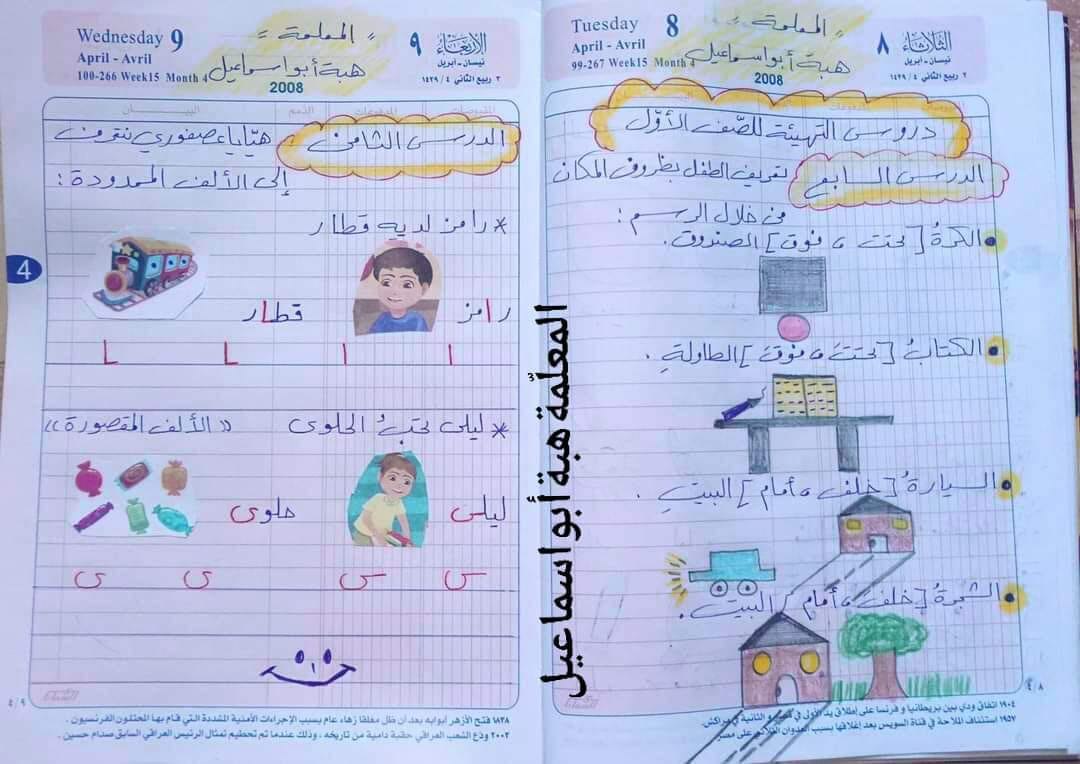 Tuesday 8
April - Avril
99-267 Week15 Month 4
2008
الثلاثاء ٨
نيسان - أبريل
٢ ربيع الثاني ٤ / ١٤٢٩
" المعلمة "
هبة أبو اسماعيل
دروس التهيئة للصّف الأوّل
الدرس السابع لتعريف الطفل بظروف المكان
من خلال الرسم :
• الكرةُ [ تحتَ ، فوق ] الصندوق .
• الكتابُ [ تحتَ ، فوقَ ] الطاولةِ .
• السيارةُ [ خلف ، أمام ] البيتِ .
• الشجرةُ [ خلف ، أمام ] البيت .
٤/٨
١٩٠٤ اتفاق ودي بين بريطانيا و فرنسا على إطلاق يد الأولى في و الثانية في مراكش.
١٩٥٧ استئناف الملاحة في قناة السويس بعد إغلاقها بسبب العدوان الثلاثي على مصر
المعلّمة هبة أبو اسماعيل
Wednesday 9
April - Avril
100-266 Week15 Month 4
2008
الأربعاء ٩
نيسان - أبريل
٣ ربيع الثاني ٤ / ١٤٢٩
" المعلمة "
هبة أبو اسماعيل
البيــان الذمم المدفوعات المقبوضات
الدرس الثامن : هيّا يا عصفوري نتعرف
إلى الألف الممدودة :
* رامز لديه قطار
رامز قطار
ا ا ـا ـا
* ليلى تحبُ الحلوى « الألف المقصورة »
ليلى حلوى
ى ى ى ى
4
٤/٩
١٨٣٨ فتح الأزهر أبوابه بعد أن ظل مغلقا زهاء عام بسبب الإجراءات الأمنية المشددة التي قام بها المحتلون الفرنسيون .
٢٠٠٣ ودع الشعب العراقي حقبة دامية من تاريخه ، وذلك عندما تم تحطيم تمثال الرئيس العراقي السابق صدام حسين .